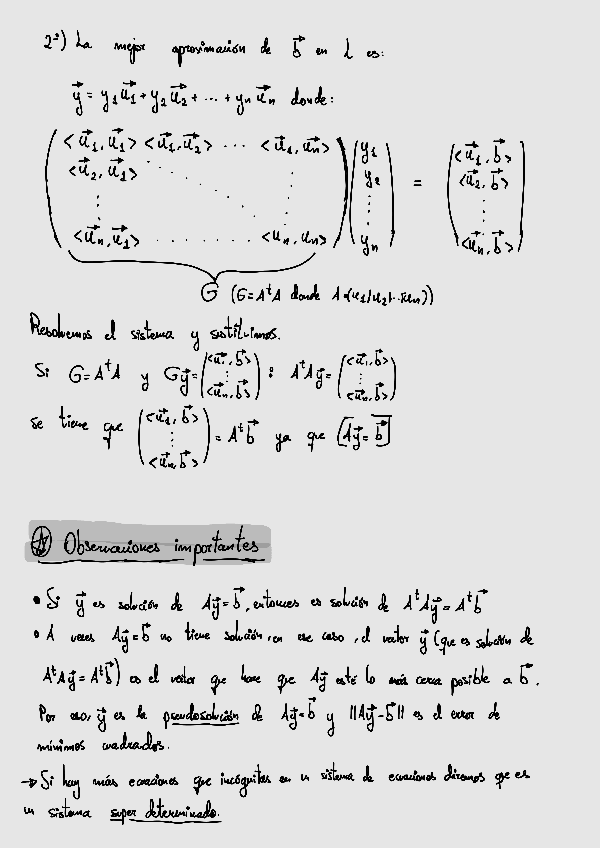 2º) La mejor aproximación de b⃗ en L es:
y⃗ = y₁u⃗₁ + y₂u⃗₂ + ... + yₙu⃗ₙ donde:
( <u⃗₁, u⃗₁> <u⃗₁, u⃗₂> ... <u⃗₁, u⃗ₙ> ) ( y₁ ) ( <u⃗₁, b⃗> )
<u⃗₂, u⃗₁> y₂ = <u⃗₂, b⃗>
⋮ ⋮ ⋮ ⋮
<u⃗ₙ, u⃗₁> ......... <uₙ, uₙ> yₙ <u⃗ₙ, b⃗>
G (G = AᵗA donde A=(u₁/u₂/...u⃗ₙ))
Resolvemos el sistema y sustituimos.
Si G = AᵗA y Gy⃗ = ( <u⃗₁, b⃗> ⋮ <u⃗ₙ, b⃗> ) : AᵗAy⃗ = ( <u⃗₁, b⃗> ⋮ <u⃗ₙ, b⃗> )
se tiene que ( <u⃗₁, b⃗> ⋮ <u⃗ₙ, b⃗> ) = Aᵗb⃗ ya que Ay⃗ = b⃗
Observaciones importantes
• Si y⃗ es solución de Ay⃗ = b⃗, entonces es solución de AᵗAy⃗ = Aᵗb⃗
• A veces Ay⃗ = b⃗ no tiene solución, en ese caso, el vector y⃗ (que es solución de
AᵗAy⃗ = Aᵗb⃗) es el vector que hace que Ay⃗ esté lo más cerca posible a b⃗.
Por eso, y⃗ es la pseudosolución de Ay⃗ = b⃗ y ||Ay⃗ - b⃗|| es el error de
mínimos cuadrados.
→ Si hay más ecuaciones que incógnitas en un sistema de ecuaciones diremos que es
un sistema super determinado.